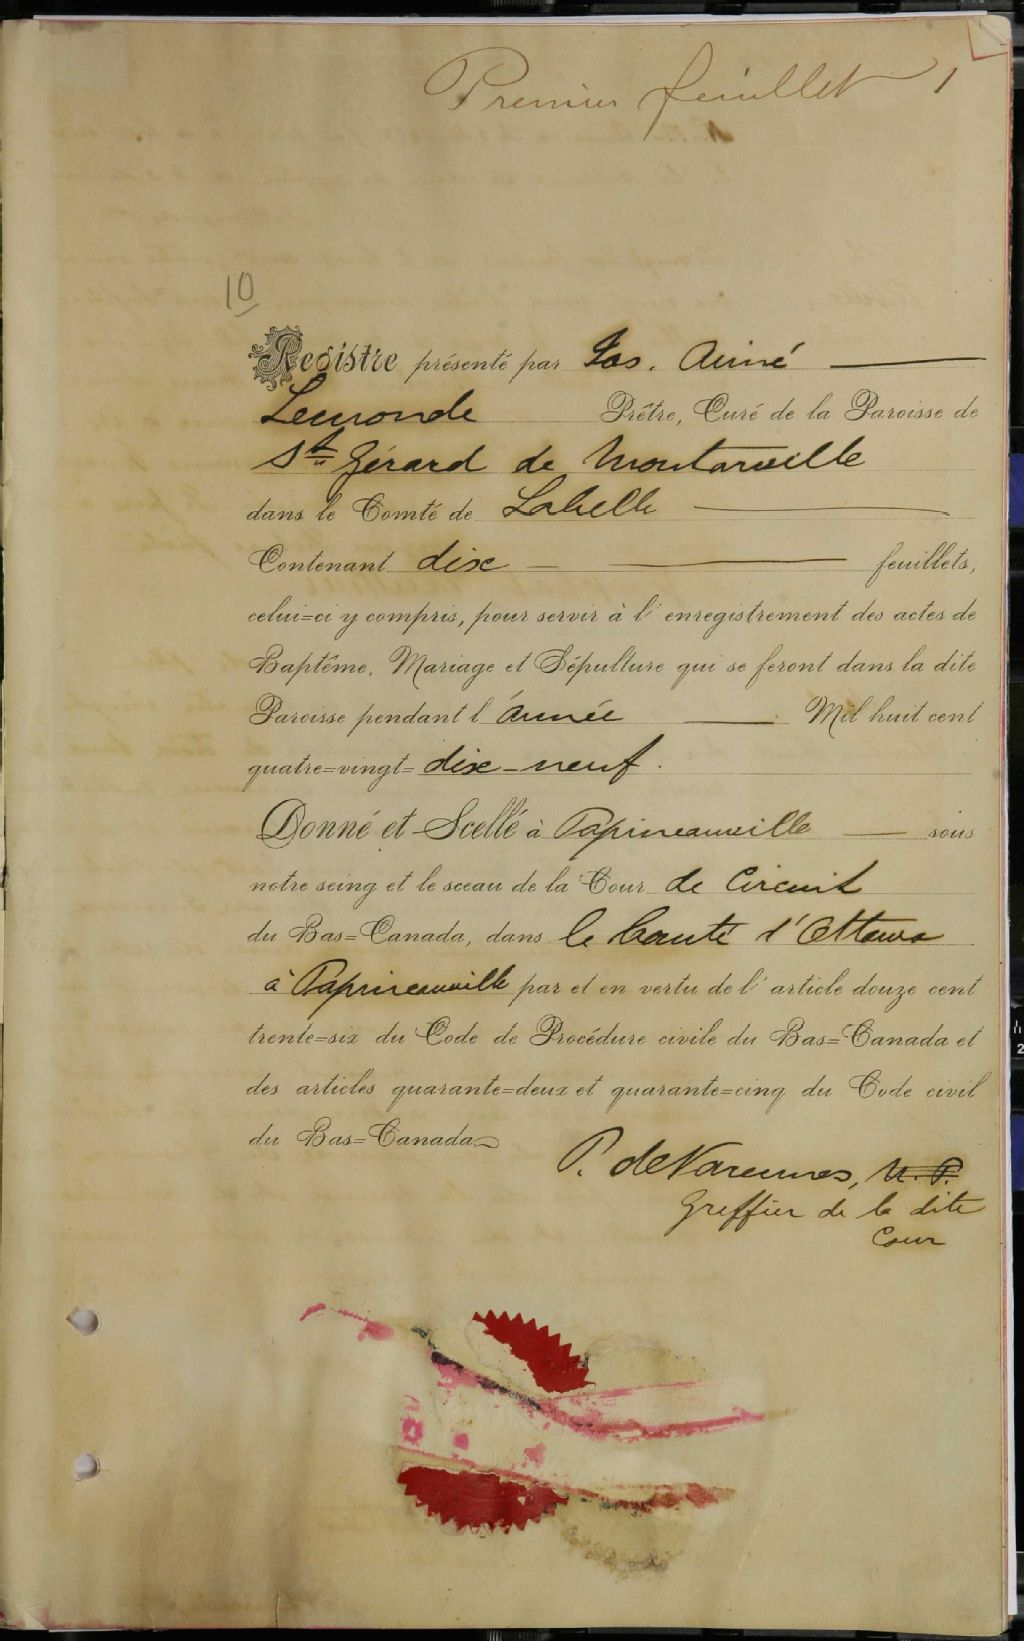 Premier feuillet 1
10
Registre présenté par Jos. Aimé
Lemonde Prêtre, Curé de la Paroisse de
St Gérard de Montarville
dans le Comté de Labelle
Contenant dix feuillets,
celui=ci y compris, pour servir à l'enregistrement des actes de
Baptême, Mariage et Sépulture qui se feront dans la dite
Paroisse pendant l'année Mil huit cent
quatre=vingt= dix-neuf.
Donné et Scellé à Papineauville sous
notre seing et le sceau de la Cour de Circuit
du Bas=Canada, dans le Comté d'Ottawa
à Papineauville par et en vertu de l'article douze cent
trente=six du Code de Procédure civile du Bas=Canada et
des articles quarante=deux et quarante=cinq du Code civil
du Bas=Canada
P. de Varennes, N.P.
Greffier de la dite
Cour